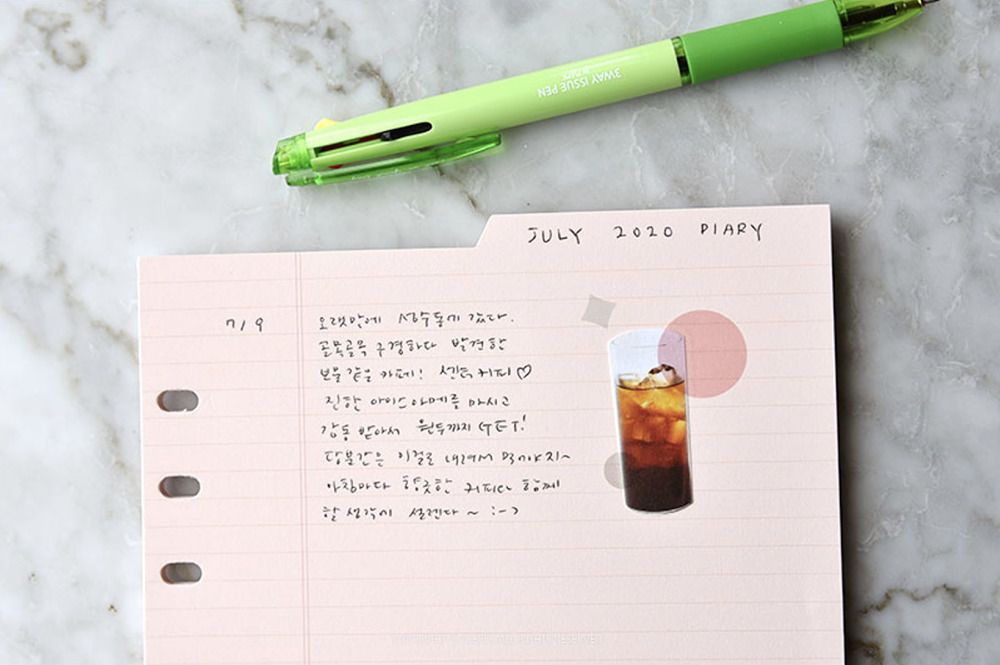 3WAY ISSUE PEN
JULY 2020 DIARY
7/9
오랫만에 성수동에 갔다.
골목골목 구경하다 발견한
보물 같은 카페! 센터커피♡
진한 아이스아메를 마시고
감동 받아서 원두까지 GET!
당분간은 이걸로 내려서 먹어야지~
아침마다 향긋한 커피와 함께
할 생각에 설렌다~ :-)